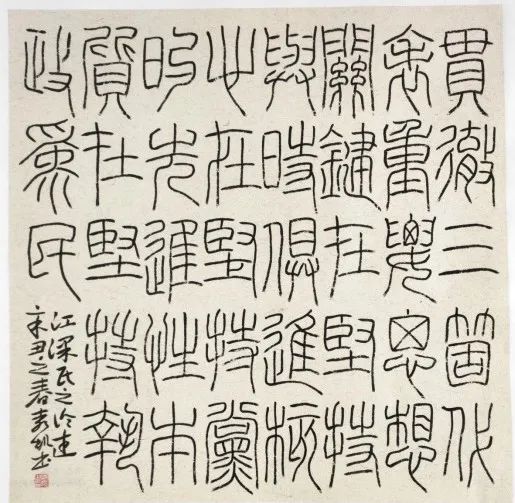 貫徹三箇代
表重要思想
關鍵在堅持
與時俱進核
心在堅持黨
的先進性本
質在堅持執
政為民
江澤民之
辛丑之春書